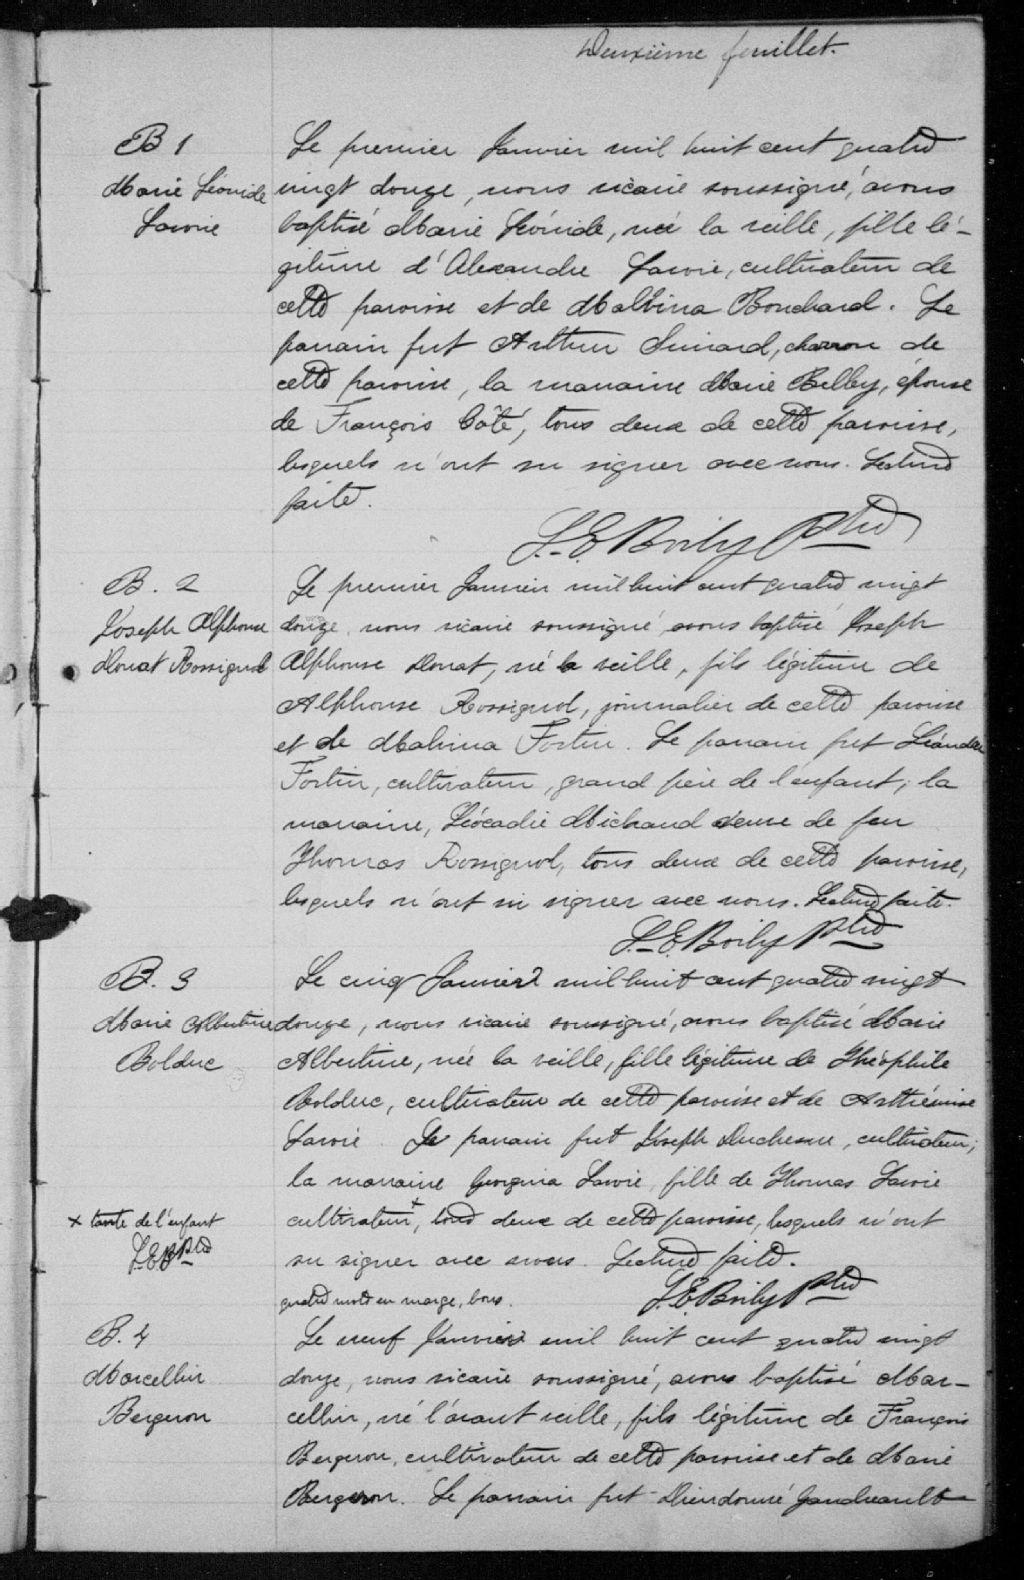 Deuxième feuillet.
B 1
Marie Léonide
Lavoie
Le premier Janvier mil huit cent quatre
vingt douze, nous vicaire soussigné, avons
baptisé Marie Léonide, née la veille, fille lé-
gitime d'Alexandre Lavoie, cultivateur de
cette paroisse et de Malvina Bouchard. Le
parrain fut Arthur Simard, charron de
cette paroisse, la marraine Marie Belley, épouse
de François Côté, tous deux de cette paroisse,
lesquels n'ont su signer avec nous. Lecture
faite.
L. E. Boily Ptre
B. 2
Joseph Alphonse
Donat Rossignol
Le premier Janvier mil huit cent quatre vingt
douze, nous vicaire soussigné avons baptisé Joseph
Alphonse Donat, né la veille, fils légitime de
Alphonse Rossignol, journalier de cette paroisse
et de Malvina Fortin. Le parrain fut Léandre
Fortin, cultivateur, grand père de l'enfant; la
marraine, Léocadie Michaud veuve de feu
Thomas Rossignol, tous deux de cette paroisse,
lesquels n'ont su signer avec nous. Lecture faite.
L. E. Boily Ptre
B. 3
Marie Albertine
Bolduc
Le cinq Janvier mil huit cent quatre vingt
douze, nous vicaire soussigné, avons baptisé Marie
Albertine, née la veille, fille légitime de Théophile
Bolduc, cultivateur de cette paroisse et de Arthémise
Lavoie. Le parrain fut Joseph Duchesne, cultivateur;
la marraine Georgina Lavoie, fille de Thomas Lavoie
cultivateur +, tous deux de cette paroisse, lesquels n'ont
su signer avec nous. Lecture faite.
+ tante de l'enfant
L.E.B Ptre
quatre mots en marge, bons.
L. E. Boily Ptre
B. 4
Marcellin
Bergeron
Le neuf Janvier mil huit cent quatre vingt
douze, nous vicaire soussigné, avons baptisé Mar-
cellin, né l'avant veille, fils légitime de François
Bergeron, cultivateur de cette paroisse et de Marie
Bergeron. Le parrain fut Dieudonné Gaudreault